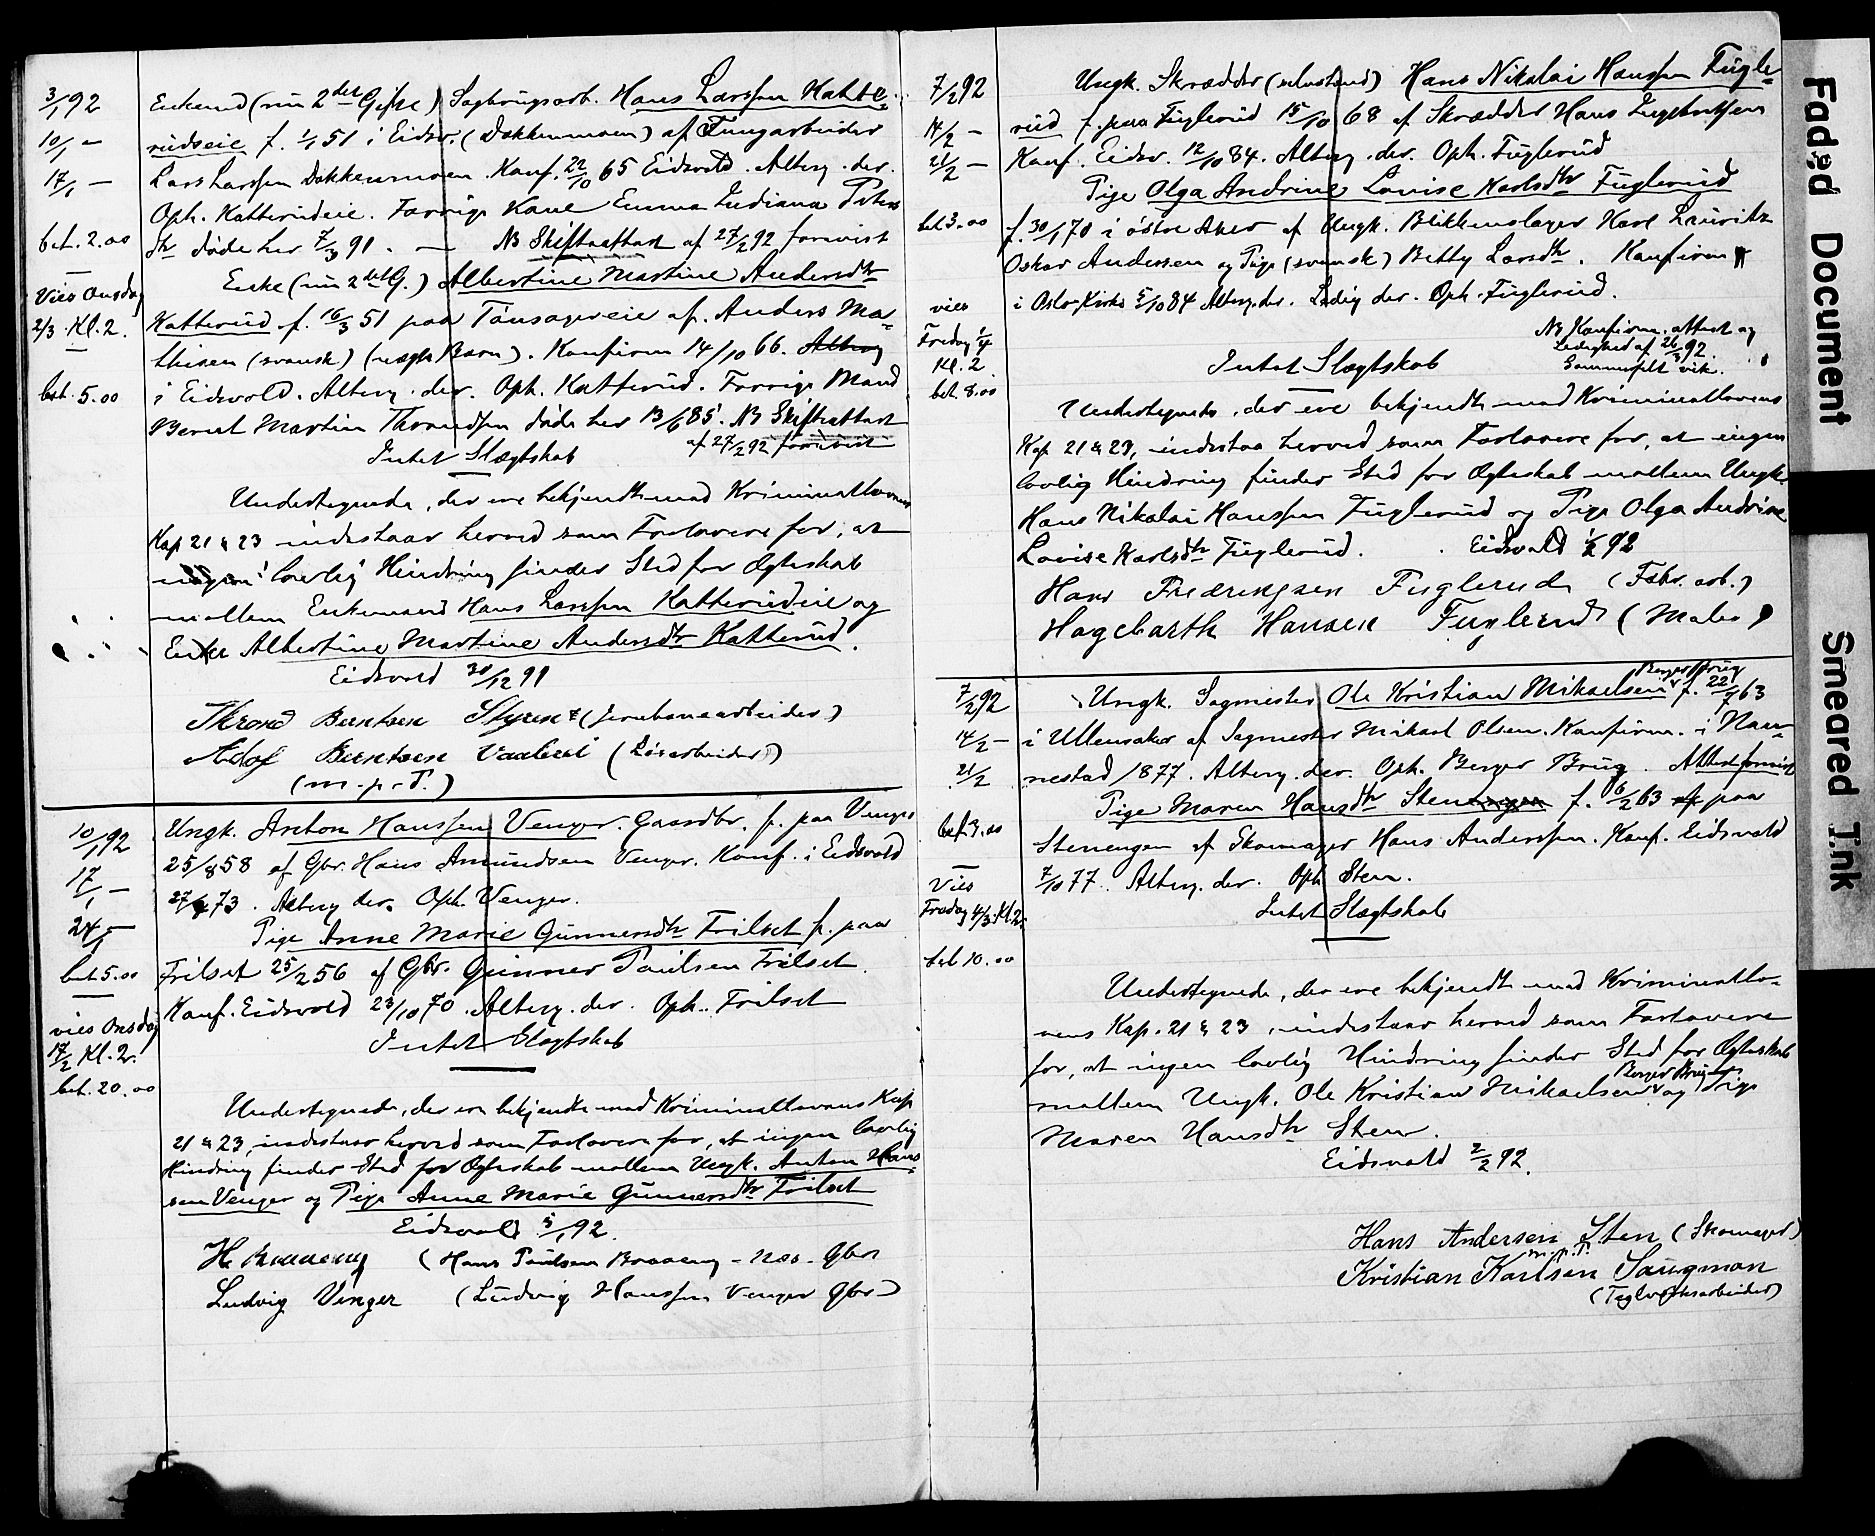 3/1 92
10/1 —
17/1 —
bet. 2.00
Vies Onsdag
2/3 Kl. 2.
bet. 5.00
Enkemd (nu 2det Gifte) Sagbrugsarb. Hans Larssen Katte-
rudseie f. 1/1 51 i Eidsv. (Dokkenmoen) af
Lars Larssen Dokkenmoen. Konf. 22/10 65 Eidsvold. Altery. der.
Oph. Katterudeie. Forrige Kone Emma Indiana Peters
dtr døde her 7/3 91. — NB Skifteattest af 27/2 92 forevist
Enke (nu 2det G.) Albertine Martine Andersdtr
Katterud f. 16/3 51 paa af Anders Ma-
thisen (svensk) (uægte Barn). Konfirm 14/10 66.
i Eidsvold. Altery. der. Oph. Katterud. Forrige Mand
Bernt Martin Throndsen døde her 13/6 85. NB Skifteattest
af 27/2 92 forevist
Intet Slægtskab
Undertegnede, der ere bekjendte med Kriminallovens
Kap 21 & 23 indestaar herved som Forlovere for, at
ingen lovlig Hindring finder Sted for Ægteskab
mellem Enkemand Hans Larssen Katterudeie og
Enke Albertine Martine Andersdtr Katterud.
Eidsvold 30/12 91
Thrond Berntsen Styren (Jernbanearbeider)
Adof Berntsen (Løsarbeider)
(m. p. P.)
10/1 92
17/1 —
24/1 —
bet 5.00
vies Onsdag
17/2 Kl. 2.
bet. 20.00
Ungk. Anton Hanssen Venger. Gaardbr. f. paa Venger
25/8 58 af Gbr. Hans Amundsen Venger. Konf. i Eidsvold
73. Altery der. Oph. Venger.
Pige Anne Marie Gunnersdtr Frilset f. paa
Frilset 25/2 56 af Gbr. Gunner Paulsen Frilset.
Konf. Eidsvold 23/10 70. Altery. der. Oph. Frilset
Intet Slægtskab
Undertegnede, der ere bekjendte med Kriminallovens Kap
21 & 23, indestaar herved som Forlovere for, at ingen lovlig
Hindring finder Sted for Ægteskab mellem Ungk. Anton Hans
sen Venger og Pige Anne Marie Gunnersdtr Frilset
Eidsvold 5/1 92.
H. Braaeng (Hans Paulsen Braaeng - Gbr)
Ludvig Venger (Ludvig Hanssen Venger Gbr)
7/2 92
14/2 —
21/2 —
bet 3.00
vies
Fredag 1/4
Kl. 2
bet. 8.00
Ungk. Skrædder (selvstænd) Hans Nikolai Hanssen Fugle-
rud f. paa Fuglerud 15/10 68 af Skrædder Hans Ingebretsen
Konf. Eidsv. 12/10 84. Altery. der. Oph. Fuglerud
Pige Olga Andrine Lovise Karlsdtr Fuglerud
f. 30/1 70 i østre Aker af Ungk. Blikkenslager Karl Lauritz
Oskar Andersen og Pige (svensk) Betty Larsdtr. Konfirm
i Oslo Kirke 5/10 84 Altery. der. Ledig der. Oph. Fuglerud.
NB Konfirm. attest og
Ledighed af 26/3 92.
Sommerfelt vik.
Intet Slægtskab
Undertegnede, der ere bekjendte med Kriminallovens
Kap 21 & 23, indestaa herved som Forlovere for, at ingen
lovlig Hindring finder Sted for Ægteskab mellem Ungk.
Hans Nikolai Hanssen Fuglerud og Pige Olga Andrine
Lovise Karlsdtr Fuglerud. Eidsvold 1/2 92
Hans Fredringsen Fuglerud (Fabr. arb.)
Hagebarth Hansen Fuglerud (Maler)
7/2 92
14/2 —
21/2
bet. 3.00
Vies
Fredag 4/3 Kl 2.
bet 10.00
Berger Brug
Ungk. Sagmester Ole Kristian Mikaelsen f. 22/7 63
i Ullensaker af Sagmester Mikael Olsen. Konfirm. i Nan-
nestad 1877. Altery. der. Oph. Berger Brug. Attest forevist
Pige Maren Hansdtr Stenengen f. 6/2 63 af paa
Stenengen af Skomager Hans Anderssen. Konf. Eidsvold
7/10 77. Altery. der. Oph Sten.
Intet Slægtskab
Undertegnede, der ere bekjendt med Kriminallo-
vens Kap. 21 & 23, indestaar herved som Forlovere
for, at ingen lovlig Hindring finder Sted for Ægteskab
Berger Brug
mellem Ungk. Ole Kristian Mikaelsen og Pige
Maren Hansdtr Sten.
Eidsvold 2/2 92.
Hans Andersen Sten (Skomager)
m. p. P.
Kristian Karlsen Saugmon
(Teglværksarbeider)
Faded Document
Smeared Ink